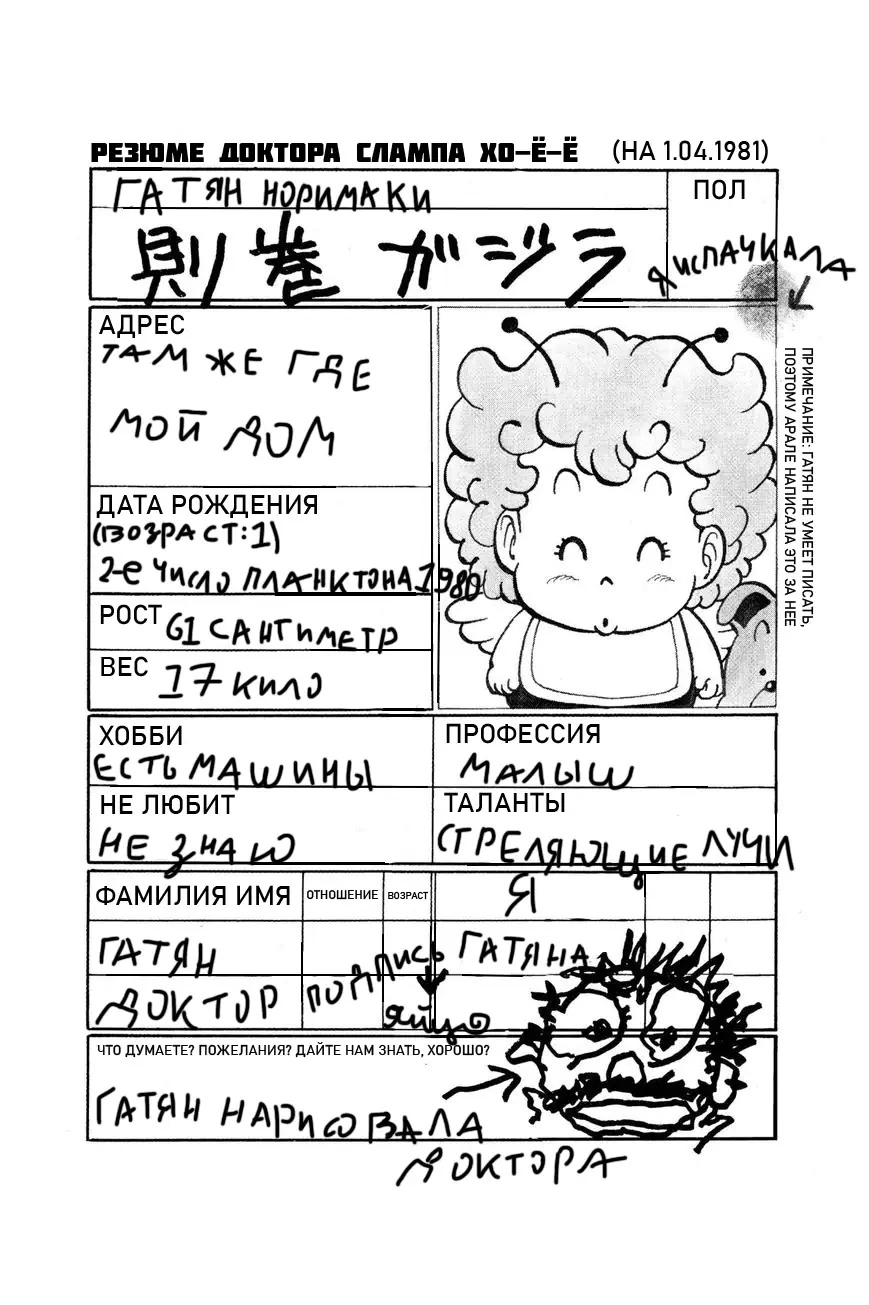 РЕЗЮМЕ ДОКТОРА СЛАМПА ХО-Ё-Ё (НА 1.04.1981)
ГАТЯН НОРИМАКИ
ПОЛ
則巻 ガジラ
Я ИСПАЧКАЛА
АДРЕС
ТАМ ЖЕ ГДЕ
МОЙ ДОМ
ПРИМЕЧАНИЕ: ГАТЯН НЕ УМЕЕТ ПИСАТЬ,
ПОЭТОМУ АРАЛЕ НАПИСАЛА ЭТО ЗА НЕЕ
ДАТА РОЖДЕНИЯ
(ВОЗРАСТ:1)
2-е ЧИСЛО ПЛАНКТОНА 1980
РОСТ 61 САНТИМЕТР
ВЕС 17 КИЛО
ХОББИ
ЕСТЬ МАШИНЫ
ПРОФЕССИЯ
МАЛЫШ
НЕ ЛЮБИТ
НЕ ЗНАЮ
ТАЛАНТЫ
СТРЕЛЯЮЩИЕ ЛУЧИ
ФАМИЛИЯ ИМЯ ОТНОШЕНИЕ ВОЗРАСТ Я
ГАТЯН ГАТЯНА
ДОКТОР ПОДПИСЬ
ЯЙЦО
ЧТО ДУМАЕТЕ? ПОЖЕЛАНИЯ? ДАЙТЕ НАМ ЗНАТЬ, ХОРОШО?
ГАТЯН НАРИСОВАЛА
ДОКТОРА